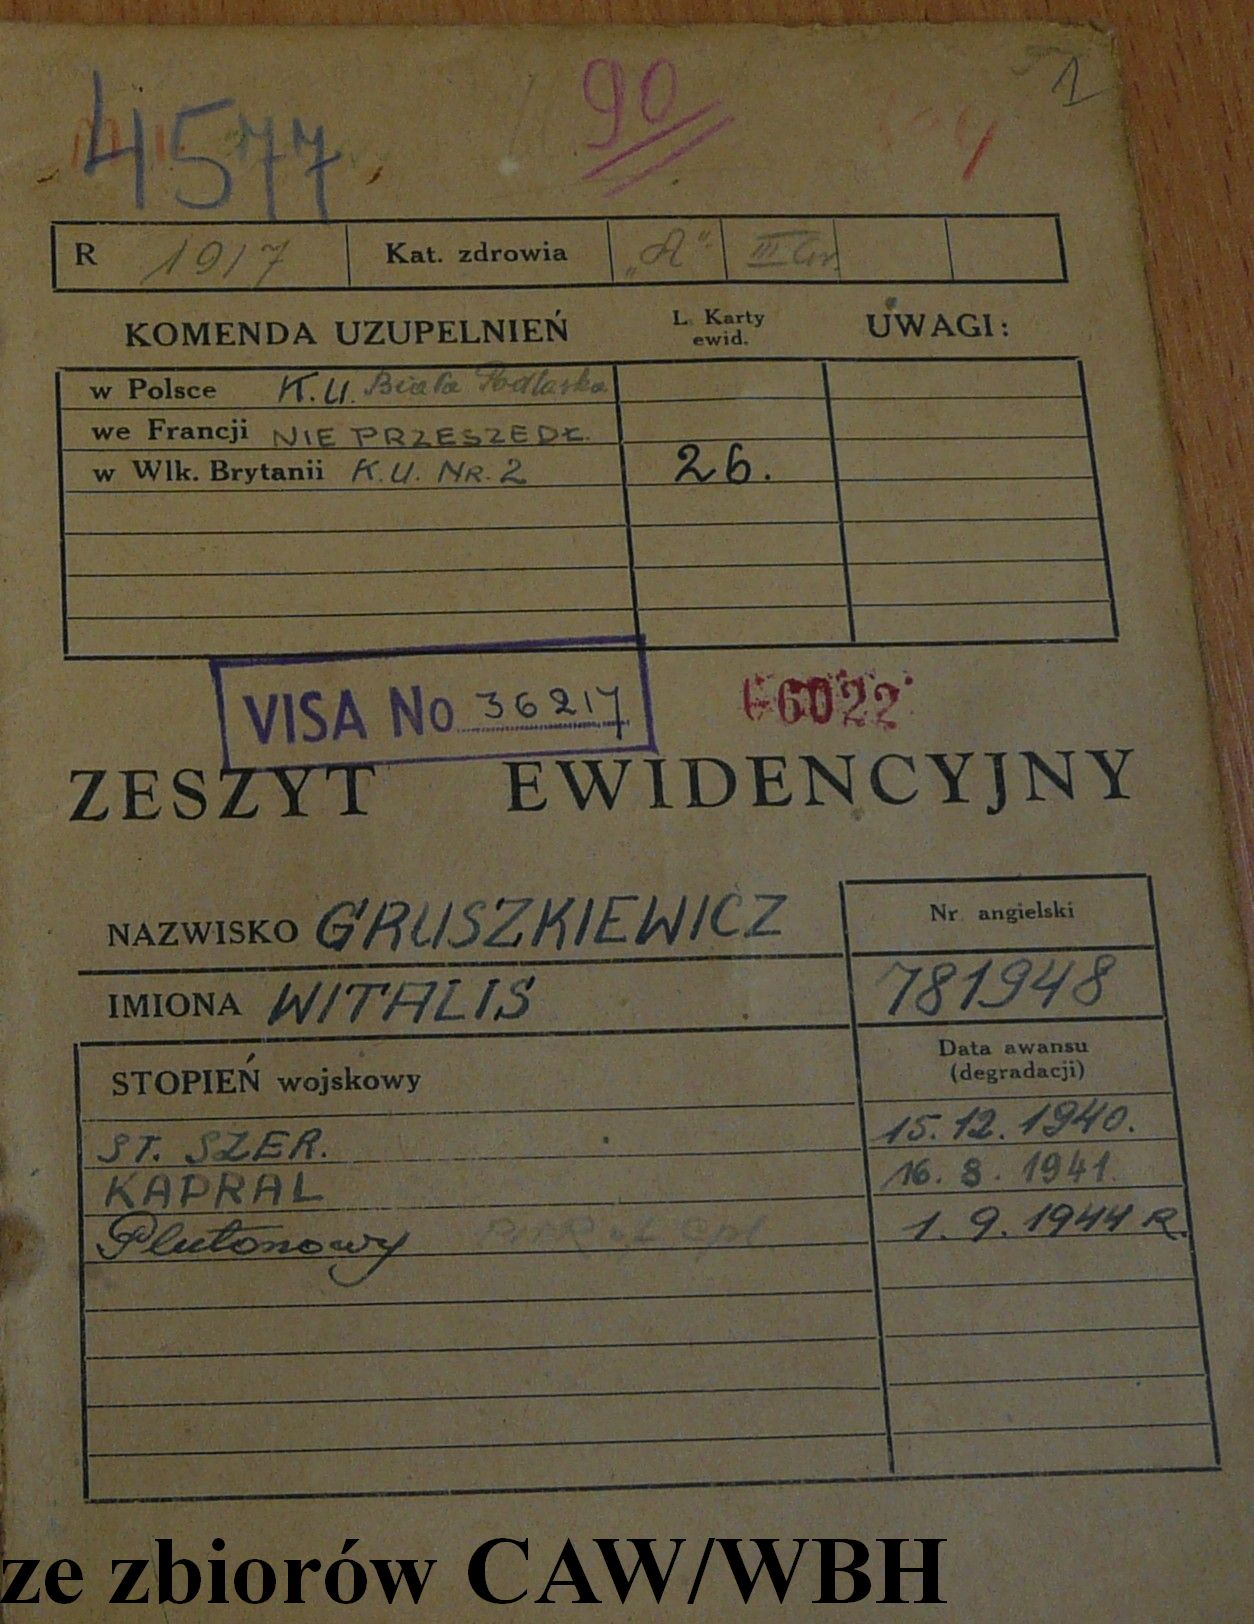 1
90
4577
R 1917 Kat. zdrowia „A“ III
KOMENDA UZUPELNIEŃ L. Karty ewid. UWAGI:
w Polsce K.U. Biała Podlaska
we Francji NIE PRZESZEDŁ
w Wlk. Brytanii K.U. NR. 2 26.
VISA No 36217 66022
ZESZYT EWIDENCYJNY
NAZWISKO GRUSZKIEWICZ Nr angielski
IMIONA WITALIS 781948
STOPIEŃ wojskowy Data awansu (degradacji)
ST. SZER. 15.12.1940.
KAPRAL 16.8.1941.
Plutonowy 1.9.1944 R.
ze zbiorów CAW/WBH